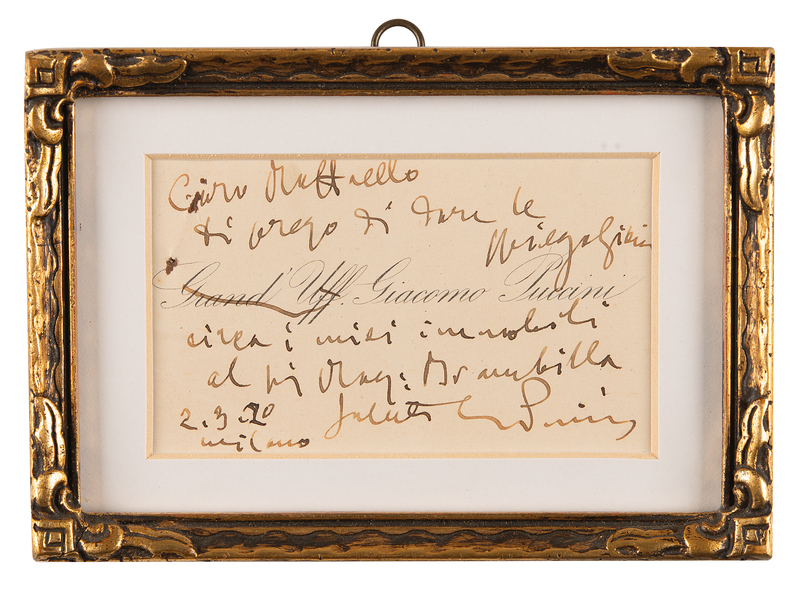 Caro Raffaello
ti prego di dare le
spiegazioni
Grand' Uff. Giacomo Puccini
circa i miei immobili
al sig Rag: Brambilla
2.3.20 Saluti
milano